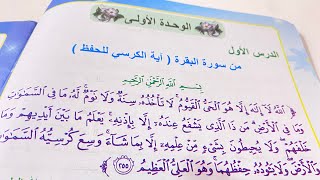 الوحدة الأولى
الدرس الأول
من سورة البقرة ( آية الكرسي للحفظ )
بِسْمِ اللَّهِ الرَّحْمَنِ الرَّحِيمِ
اللَّهُ لَا إِلَهَ إِلَّا هُوَ الْحَيُّ الْقَيُّومُ لَا تَأْخُذُهُ سِنَةٌ وَلَا نَوْمٌ لَهُ مَا فِي السَّمَوَاتِ
وَمَا فِي الْأَرْضِ مَنْ ذَا الَّذِي يَشْفَعُ عِنْدَهُ إِلَّا بِإِذْنِهِ يَعْلَمُ مَا بَيْنَ أَيْدِيهِمْ وَمَا
خَلْفَهُمْ وَلَا يُحِيطُونَ بِشَيْءٍ مِنْ عِلْمِهِ إِلَّا بِمَا شَاءَ وَسِعَ كُرْسِيُّهُ السَّمَوَاتِ
وَالْأَرْضَ وَلَا يَئُودُهُ حِفْظُهُمَا وَهُوَ الْعَلِيُّ الْعَظِيمُ ٢٥٥